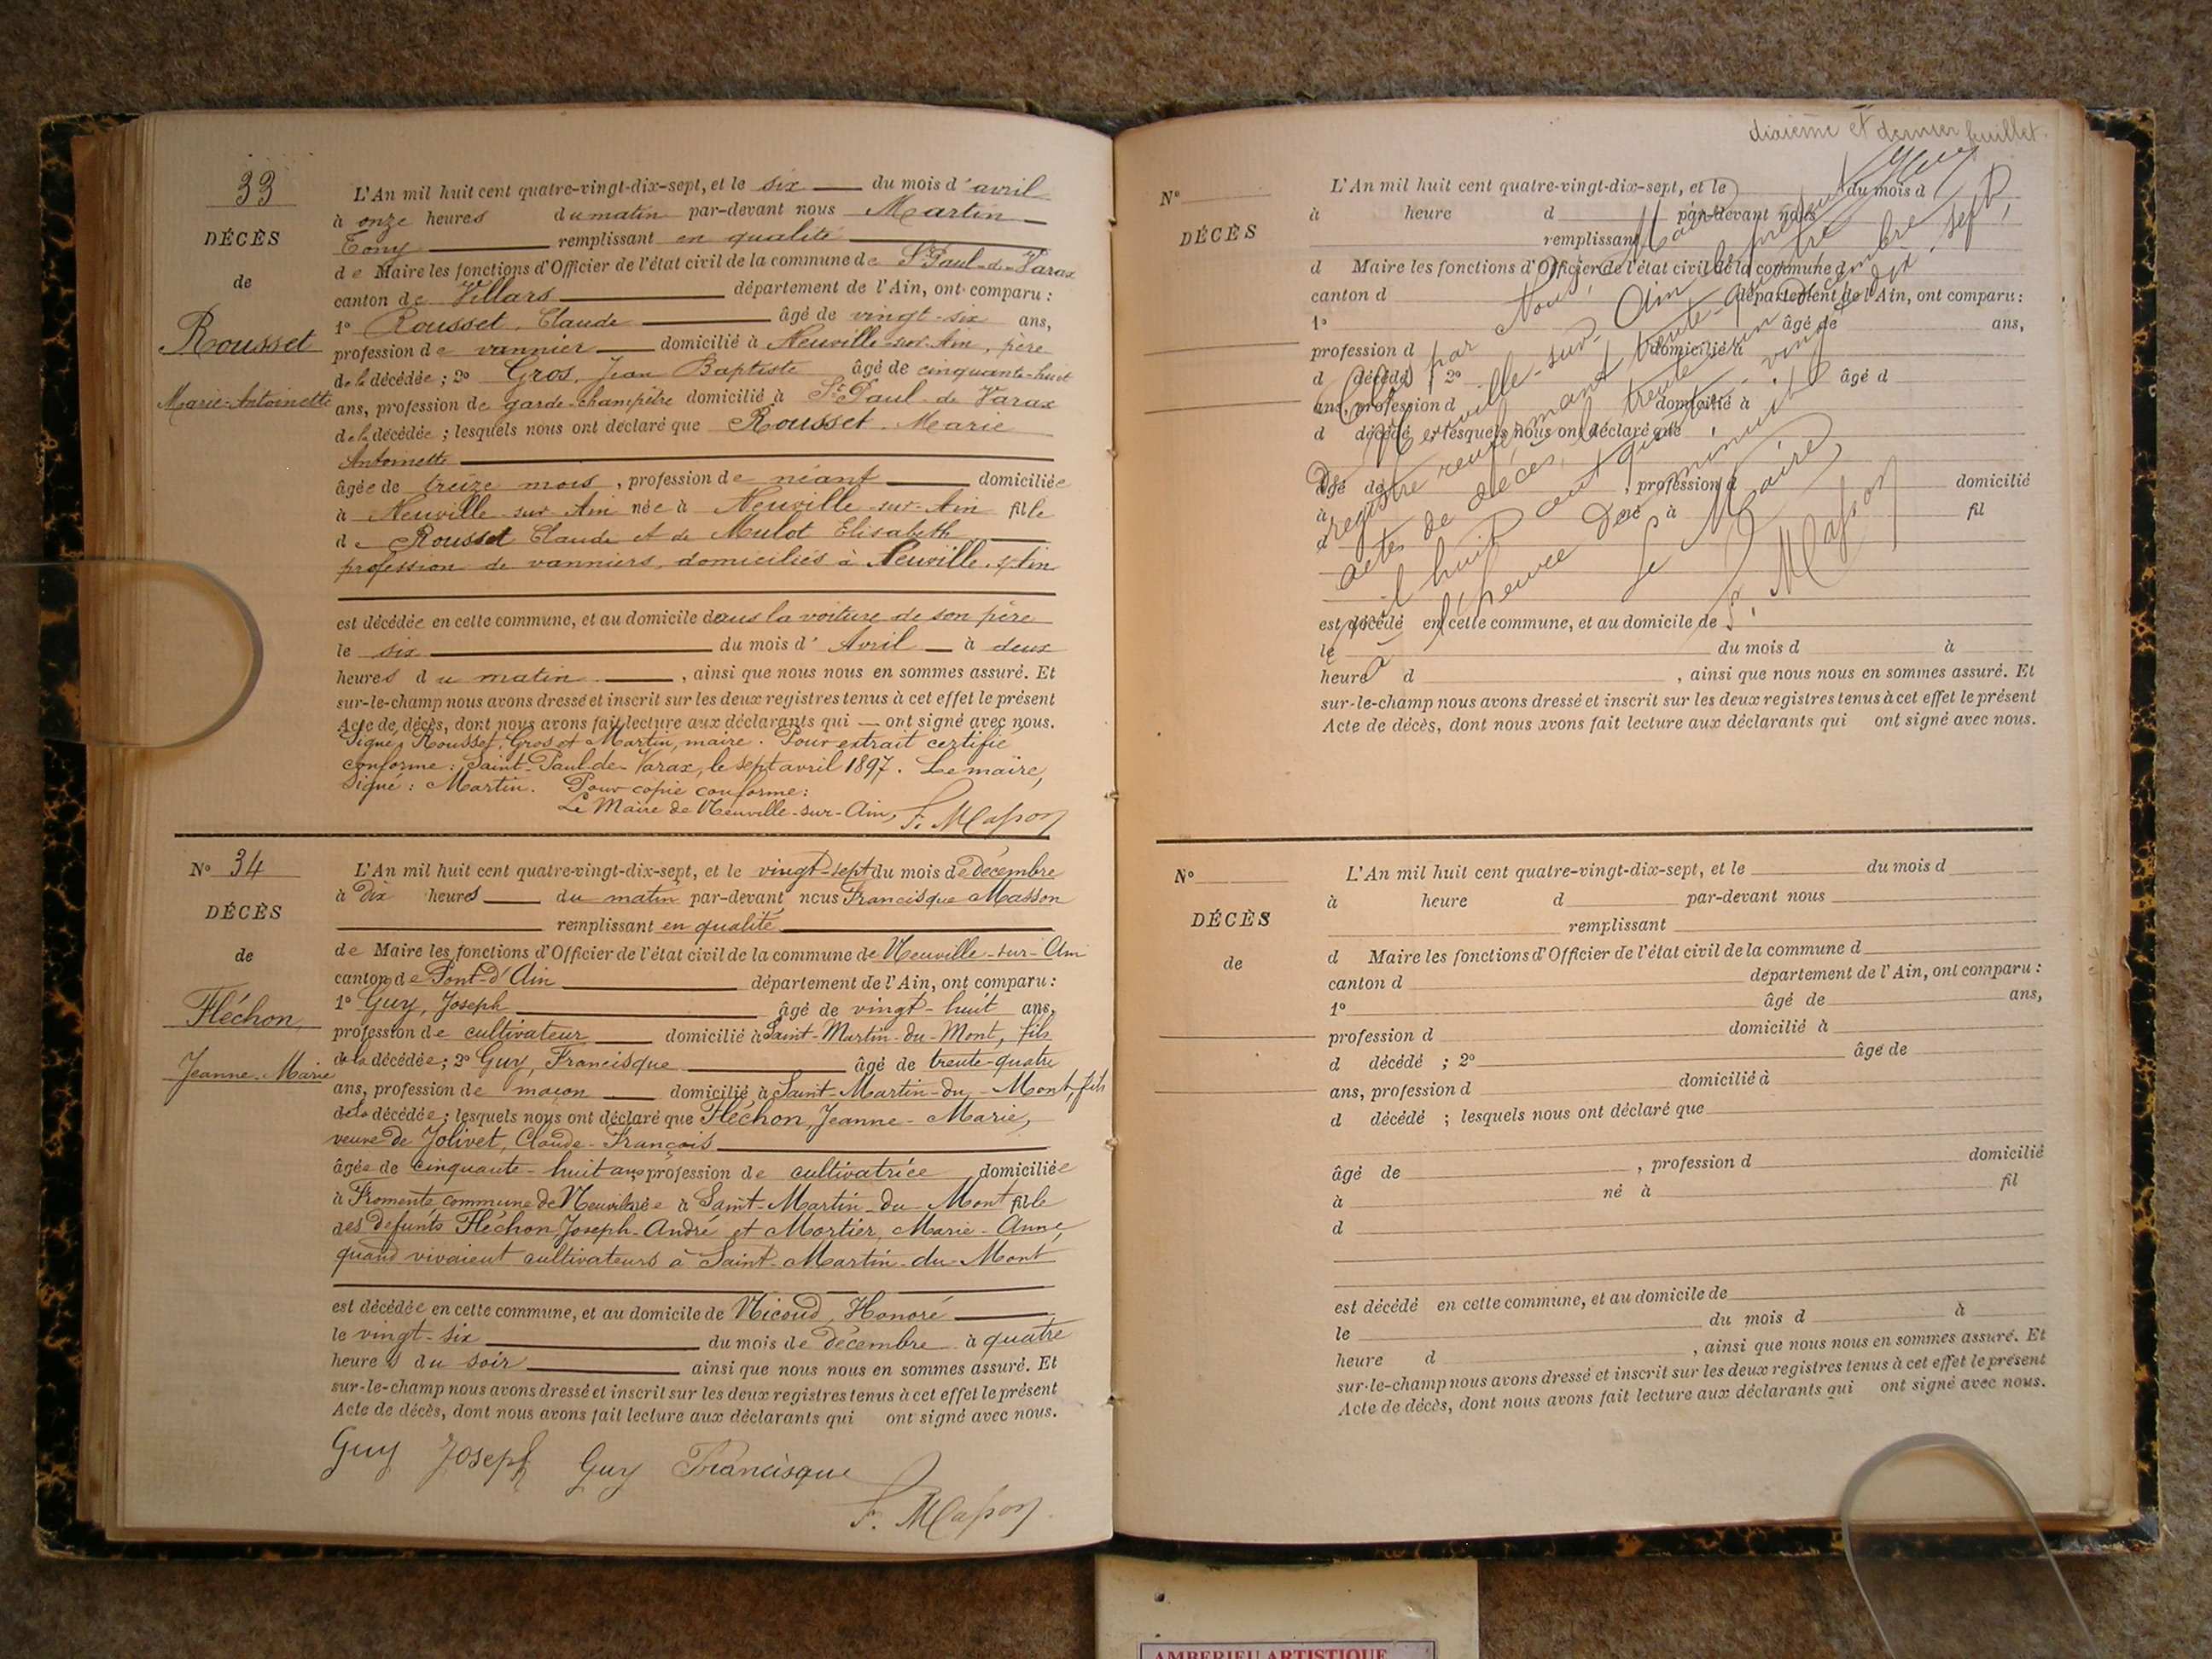 33
DÉCÈS
de
Rousset
Marie-Antoinette
L'An mil huit cent quatre-vingt-dix-sept, et le six du mois d'avril
à onze heures du matin par-devant nous Martin
Tony remplissant en qualité
de Maire les fonctions d'Officier de l'état civil de la commune de St Paul-de-Varax
canton de Villars département de l'Ain, ont comparu :
1° Rousset, Claude âgé de vingt-six ans,
profession de vannier domicilié à Neuville-sur-Ain, père
de la décédée ; 2° Gros, Jean Baptiste âgé de cinquante-huit
ans, profession de garde-champêtre domicilié à St Paul-de-Varax
de la décédée ; lesquels nous ont déclaré que Rousset Marie
Antoinette
âgée de treize mois, profession de néant domiciliée
à Neuville-sur-Ain née à Neuville-sur-Ain fille
de Rousset Claude et de Mulot Elisabeth
profession de vanniers, domiciliés à Neuville s/Ain
est décédée en cette commune, et au domicile dans la voiture de son père
le six du mois d'Avril à deux
heures du matin, ainsi que nous nous en sommes assuré. Et
sur-le-champ nous avons dressé et inscrit sur les deux registres tenus à cet effet le présent
Acte de décès, dont nous avons fait lecture aux déclarants qui — ont signé avec nous.
Signé, Rousset, Gros et Martin, maire. Pour extrait certifié
conforme : Saint-Paul-de-Varax, le sept avril 1897. Le maire,
Signé : Martin. Pour copie conforme :
Le Maire de Neuville-sur-Ain, F. Masson
N° 34
DÉCÈS
de
Fléchon,
Jeanne-Marie
L'An mil huit cent quatre-vingt-dix-sept, et le vingt-sept du mois de Décembre
à Dix heures du matin par-devant nous Francisque Masson
remplissant en qualité
de Maire les fonctions d'Officier de l'état civil de la commune de Neuville-sur-Ain
canton de Pont-d'Ain département de l'Ain, ont comparu :
1° Guy, Joseph âgé de vingt-huit ans,
profession de cultivateur domicilié à Saint-Martin-du-Mont, fils
de la décédée ; 2° Guy, Francisque âgé de trente-quatre
ans, profession de maçon domicilié à Saint-Martin-du-Mont, fils
de la décédée ; lesquels nous ont déclaré que Fléchon, Jeanne-Marie,
veuve de Jolivet, Claude-François
âgée de cinquante-huit ans profession de cultivatrice domiciliée
à Fromente commune de Neuville née à Saint-Martin-du-Mont fille
des défunts Fléchon Joseph-André et Mortier, Marie-Anne,
quand vivaient cultivateurs à Saint-Martin-du-Mont
est décédée en cette commune, et au domicile de Nicoud, Honoré
le vingt-six du mois de Décembre à quatre
heures du soir ainsi que nous nous en sommes assuré. Et
sur-le-champ nous avons dressé et inscrit sur les deux registres tenus à cet effet le présent
Acte de décès, dont nous avons fait lecture aux déclarants qui ont signé avec nous.
Guy Joseph Guy Francisque
F. Masson
dixième et dernier feuillet.
N°
DÉCÈS
L'An mil huit cent quatre-vingt-dix-sept, et le du mois d
à heure d par-devant nous
remplissant
d Maire les fonctions d'Officier de l'état civil de la commune d
canton d département de l'Ain, ont comparu :
1° âgé de ans,
profession d domicilié à
d décédé ; 2° âgé d
ans, profession d domicilié à
d décédé ; lesquels nous ont déclaré que
âgé de , profession d domicilié
à né à fil
d
est décédé en cette commune, et au domicile de
le du mois d à
heure d , ainsi que nous nous en sommes assuré. Et
sur-le-champ nous avons dressé et inscrit sur les deux registres tenus à cet effet le présent
Acte de décès, dont nous avons fait lecture aux déclarants qui ont signé avec nous.
Clos par Nous, Maire
De Neuville-sur-Ain le présent
registre renfermant trente-quatre
actes de décès, le trente un Décembre
mil huit cent quatre-vingt-dix-sept,
à l'heure de minuit
Le Maire,
F. Masson
N°
DÉCÈS
de
L'An mil huit cent quatre-vingt-dix-sept, et le du mois d
à heure d par-devant nous
remplissant
d Maire les fonctions d'Officier de l'état civil de la commune d
canton d département de l'Ain, ont comparu :
1° âgé de ans,
profession d domicilié à
d décédé ; 2° âgé de
ans, profession d domicilié à
d décédé ; lesquels nous ont déclaré que
âgé de , profession d domicilié
à né à fil
d
est décédé en cette commune, et au domicile de
le du mois d à
heure d , ainsi que nous nous en sommes assuré. Et
sur-le-champ nous avons dressé et inscrit sur les deux registres tenus à cet effet le présent
Acte de décès, dont nous avons fait lecture aux déclarants qui ont signé avec nous.
AMBERIEU ARTISTIQUE